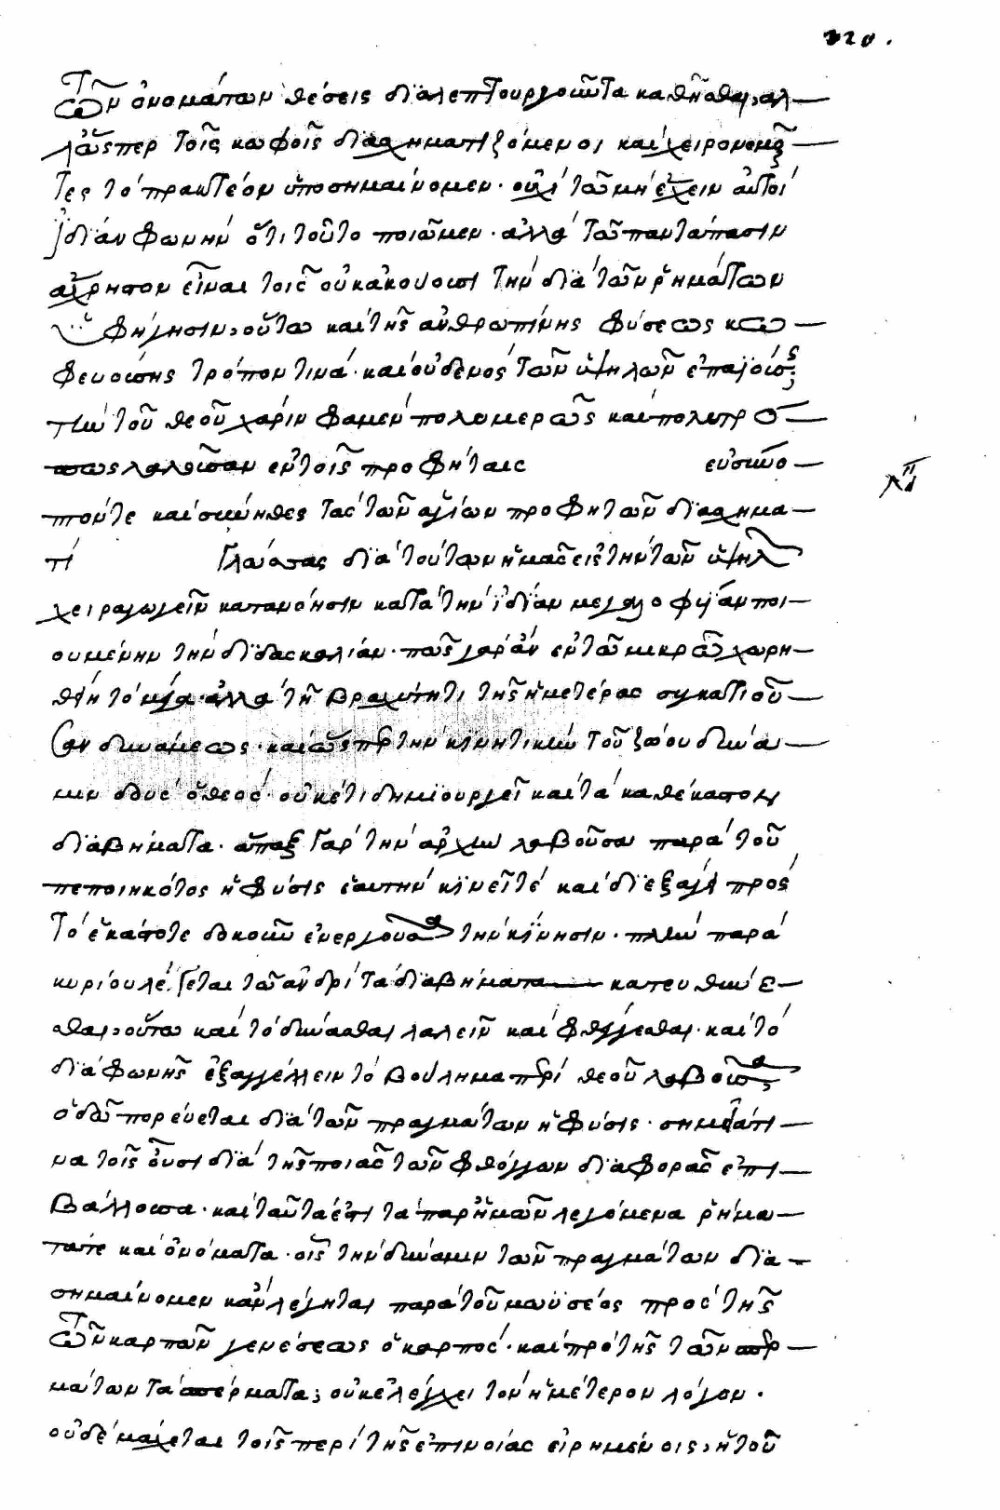 320.
τῶν ὀνομάτων θέσεις διαλεπτουργοῦντα καθῆσθαι, ἀλ-
λ' ὥσπερ τοῖς κωφοῖς διασχηματιζόμενοι καὶ χειρονομοῦν
τες τὸ πρακτέον ὑποσημαίνομεν· οὐχὶ τῶ μὴ ἔχειν αὐτοὶ
ἰδίαν φωνὴν ὅτι τοῦτο ποιῶμεν· ἀλλὰ τῶ παντάπασιν
ἄχρηστον εἶναι τοῖς οὐκ ἀκούουσι τὴν διὰ τῶν ῥημάτων
ὑφήγησιν, οὕτω καὶ τῆς ἀνθρωπίνης φύσεως κω-
φευούσης τρόπον τινὰ· καὶ οὐδενὸς τῶν ὑψηλῶν ἐπαϊούσης
τὴν τοῦ θεοῦ χάριν φαμὲν πολυμερῶς καὶ πολυτρό-
πως λαλοῦσαν ἐν τοῖς προφήταις εὐσυνό-
πτοντε καὶ συνήθεις τὰς τῶν ἁγίων προφητῶν διασχημα-
τί γλώσσας διὰ τούτων ἡμᾶς εἰς τὴν τῶν ὑψηλῶν
χειραγωγεῖν κατανόησιν κατὰ τὴν ἰδίαν μεγαλοφυΐαν ποι-
ουμένην τὴν διδασκαλίαν· πῶς γὰρ ἂν ἐν τῶ μικρῶ χωρη-
θείη τὸ μέγα· ἀλλὰ τῆ βραχύτητι τῆς ἡμετέρας συγκατιοῦ-
σαν δυνάμεως· καὶ ὥσπερ τὴν κινητικὴν τοῦ ζώου δύνα-
μιν δοὺς ὁ θεὸς· οὐκέτι δημιουργεῖ καὶ τὰ καθέκαστον
διαβήματα· ἅπαξ γὰρ τὴν ἀρχὴν λαβοῦσα παρὰ τοῦ
πεποιηκότος ἡ φύσις ἑαυτὴν κινεῖ τε καὶ διεξάγει πρὸς
τὸ ἑκάστοτε δοκοῦν ἐνεργοῦσα τὴν κίνησιν· πλὴν παρὰ
κυρίου λέγεται τῶ ἀνδρὶ τὰ διαβήματα κατευθύνε-
σθαι, οὕτω καὶ τὸ δύνασθαι λαλεῖν καὶ φθέγγεσθαι· καὶ τὸ
διὰ φωνῆς ἐξαγγέλλειν τὸ βούλημα παρὰ θεοῦ λαβοῦσα
ὁδῶ πορεύεται διὰ τῶν πραγμάτων ἡ φύσις· σημεῖά τι-
να τοῖς οὖσι διὰ τῆς ποιᾶς τῶν φθόγγων διαφορᾶς ἐπι-
βάλλουσα· καὶ ταῦτά ἐστι τὰ παρ' ἡμῶν λεγόμενα ῥήμα-
τά τε καὶ ὀνόματα· οἷς τὴν δύναμιν τῶν πραγμάτων δια-
σημαίνομεν κἂν λέγηται παρὰ τοῦ μωϋσέος πρὸς τῆς
τῶν καρπῶν γενέσεως ὁ καρπὸς· καὶ πρὸ τῆς τῶν σπερ-
μάτων τὰ σπέρματα; οὐκ ἐλέγχει τὸν ἡμέτερον λόγον·
οὐδὲ μάχεται τοῖς περὶ τῆς ἐπινοίας εἰρημένοις, ἢ τοῦ